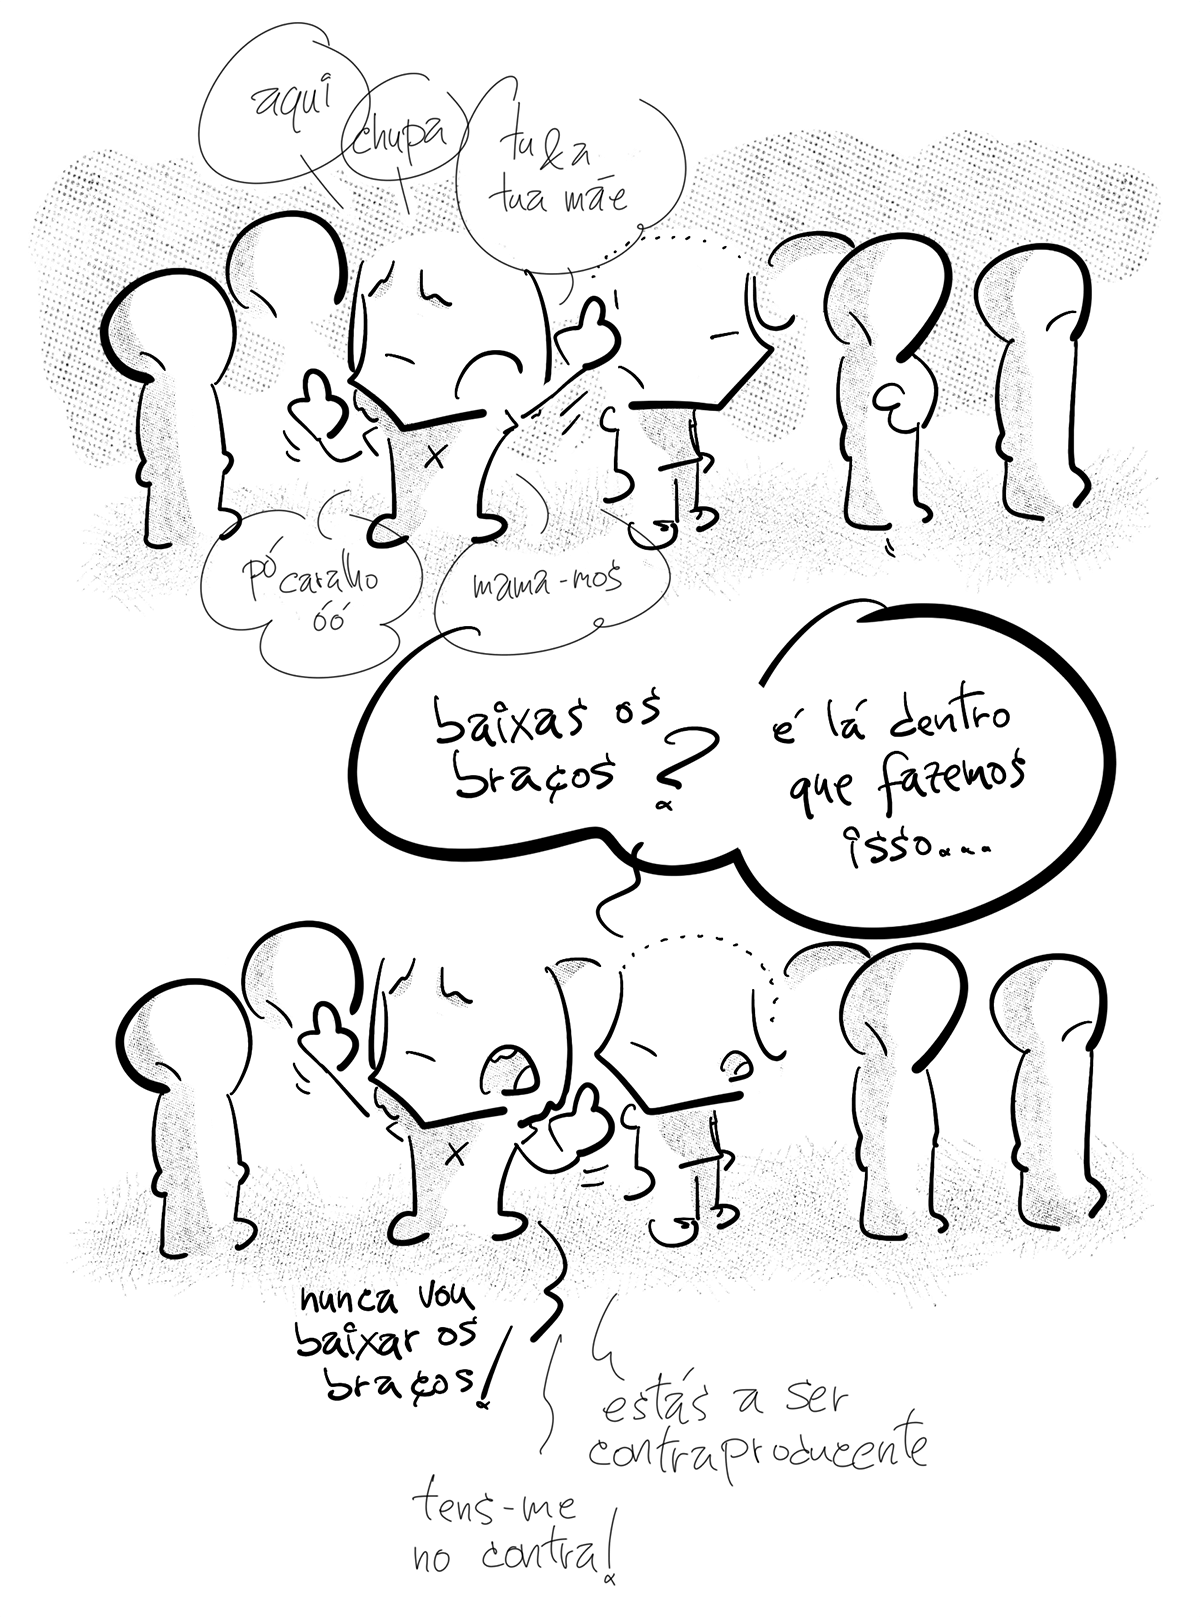 aqui
chupa
tu & a
tua mãe
pó
caralho
óó
mama-mos
baixas os
braços?
é lá dentro
que fazemos
isso...
nunca vou
baixar os
braços!
estás a ser
contraproducente
tens-me
no contra!